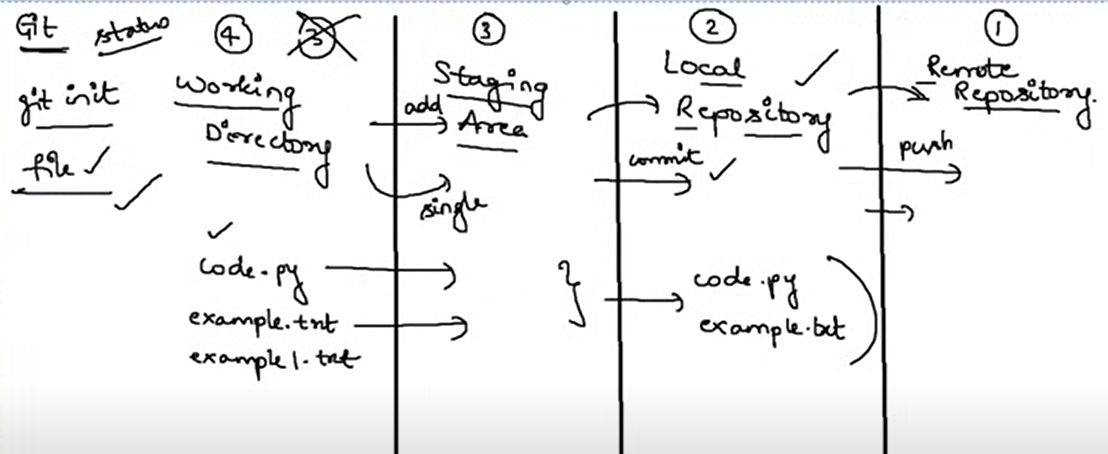 Git status
git init
file
④ 3
Working
Directory
code.py
example.txt
example1.txt
③
Staging
Area
add
single
②
Local
Repository
commit
code.py
example.txt
①
Remote
Repository.
push